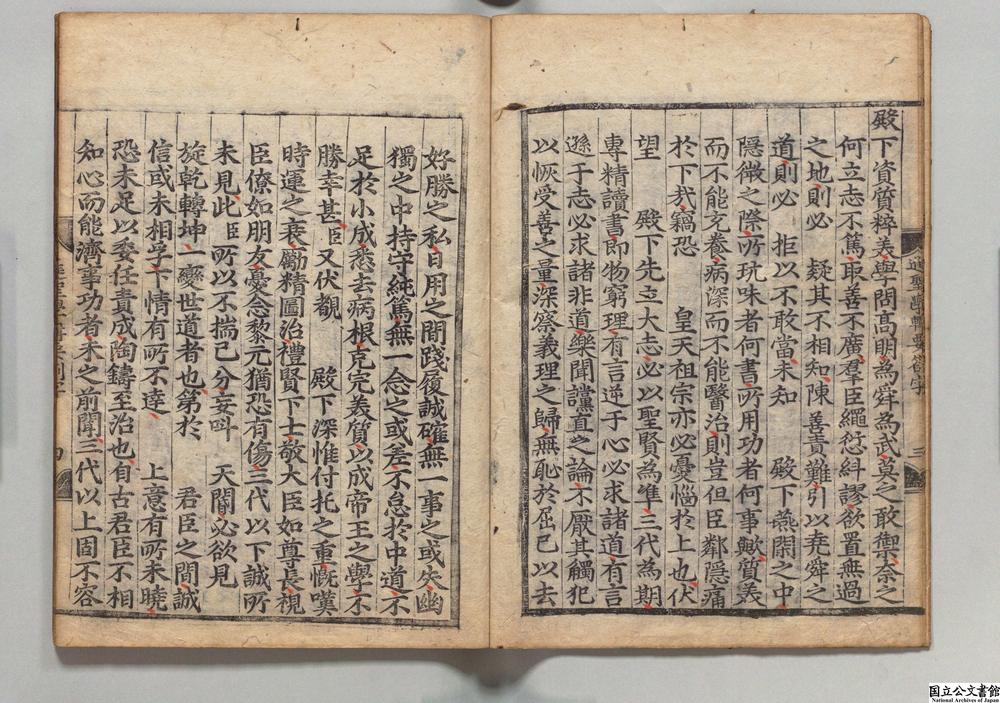 殿下資質粹美學問高明爲舜爲武莫之敢禦奈之
何立志不篤取善不廣羣臣繩愆糾謬欲置無過
之地則必 疑其不相知陳善責難引以堯舜之
道則必 拒以不敢當未知 殿下燕閑之中
隱微之際所玩味者何書所用功者何事歟質美
而不能充養病深而不能醫治則豈但臣鄰隱痛
於下哉竊恐 皇天祖宗亦必憂惱於上也伏
望 殿下先立大志必以聖賢爲準三代爲期
專精讀書即物窮理有言逆于心必求諸道有言
遜于志必求諸非道樂聞讜直之論不厭其觸犯
以恢受善之量深察義理之歸無恥於屈己以去
進聖學輯要箚字 三
好勝之私日用之間踐履誠確無一事之或失幽
獨之中持守純篤無一念之或差不怠於中道不
足於小成悉去病根克完美質以成帝王之學不
勝幸甚臣又伏覩 殿下深惟付托之重慨嘆
時運之衰勵精圖治禮賢下士敬大臣如尊長視
臣僚如朋友憂念黎元猶恐有傷三代以下誠所
未見此臣所以不揣己分妄叫 天閽必欲見
旋乾轉坤一變世道者也第於 君臣之間誠
信或未相孚下情有所不達 上意有所未曉
恐未足以委任責成陶鑄至治也自古君臣不相
知心而能濟事功者未之前聞三代以上固不容
四
国立公文書館
National Archives of Japan